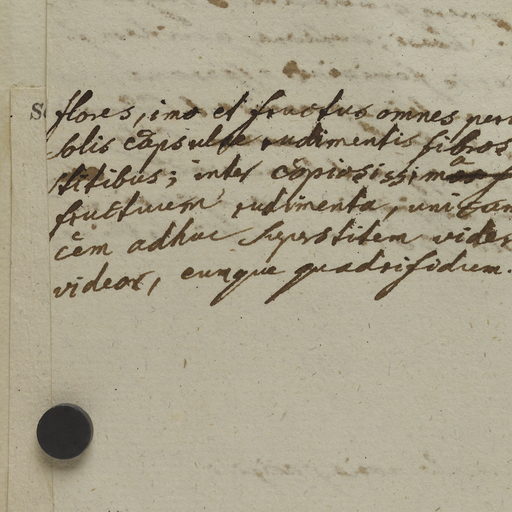 flores, imo et fructus omnes peri
solis capsulae rudimentis fibros
titibus; inter copiosissima
fructuum rudimenta, unicam
cem adhuc superstitem vider
videor, eumque quadrifidum.
S